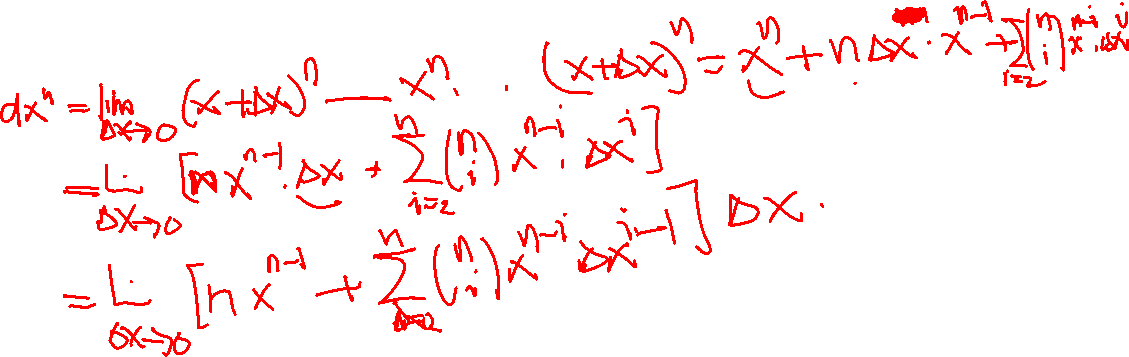 dxⁿ = lim_{Δx→0} (x+Δx)ⁿ — xⁿ . . (x+Δx)ⁿ = xⁿ + n Δx · xⁿ⁻¹ + ∑_{i=2}^{n} (n i) xⁿ⁻ⁱ · Δxⁱ
= L_{Δx→0} [n xⁿ⁻¹ · Δx + ∑_{i=2}^{n} (n i) xⁿ⁻ⁱ · Δxⁱ]
= L_{Δx→0} [n xⁿ⁻¹ + ∑_{i=2}^{n} (n i) xⁿ⁻ⁱ Δxⁱ⁻¹] Δx .